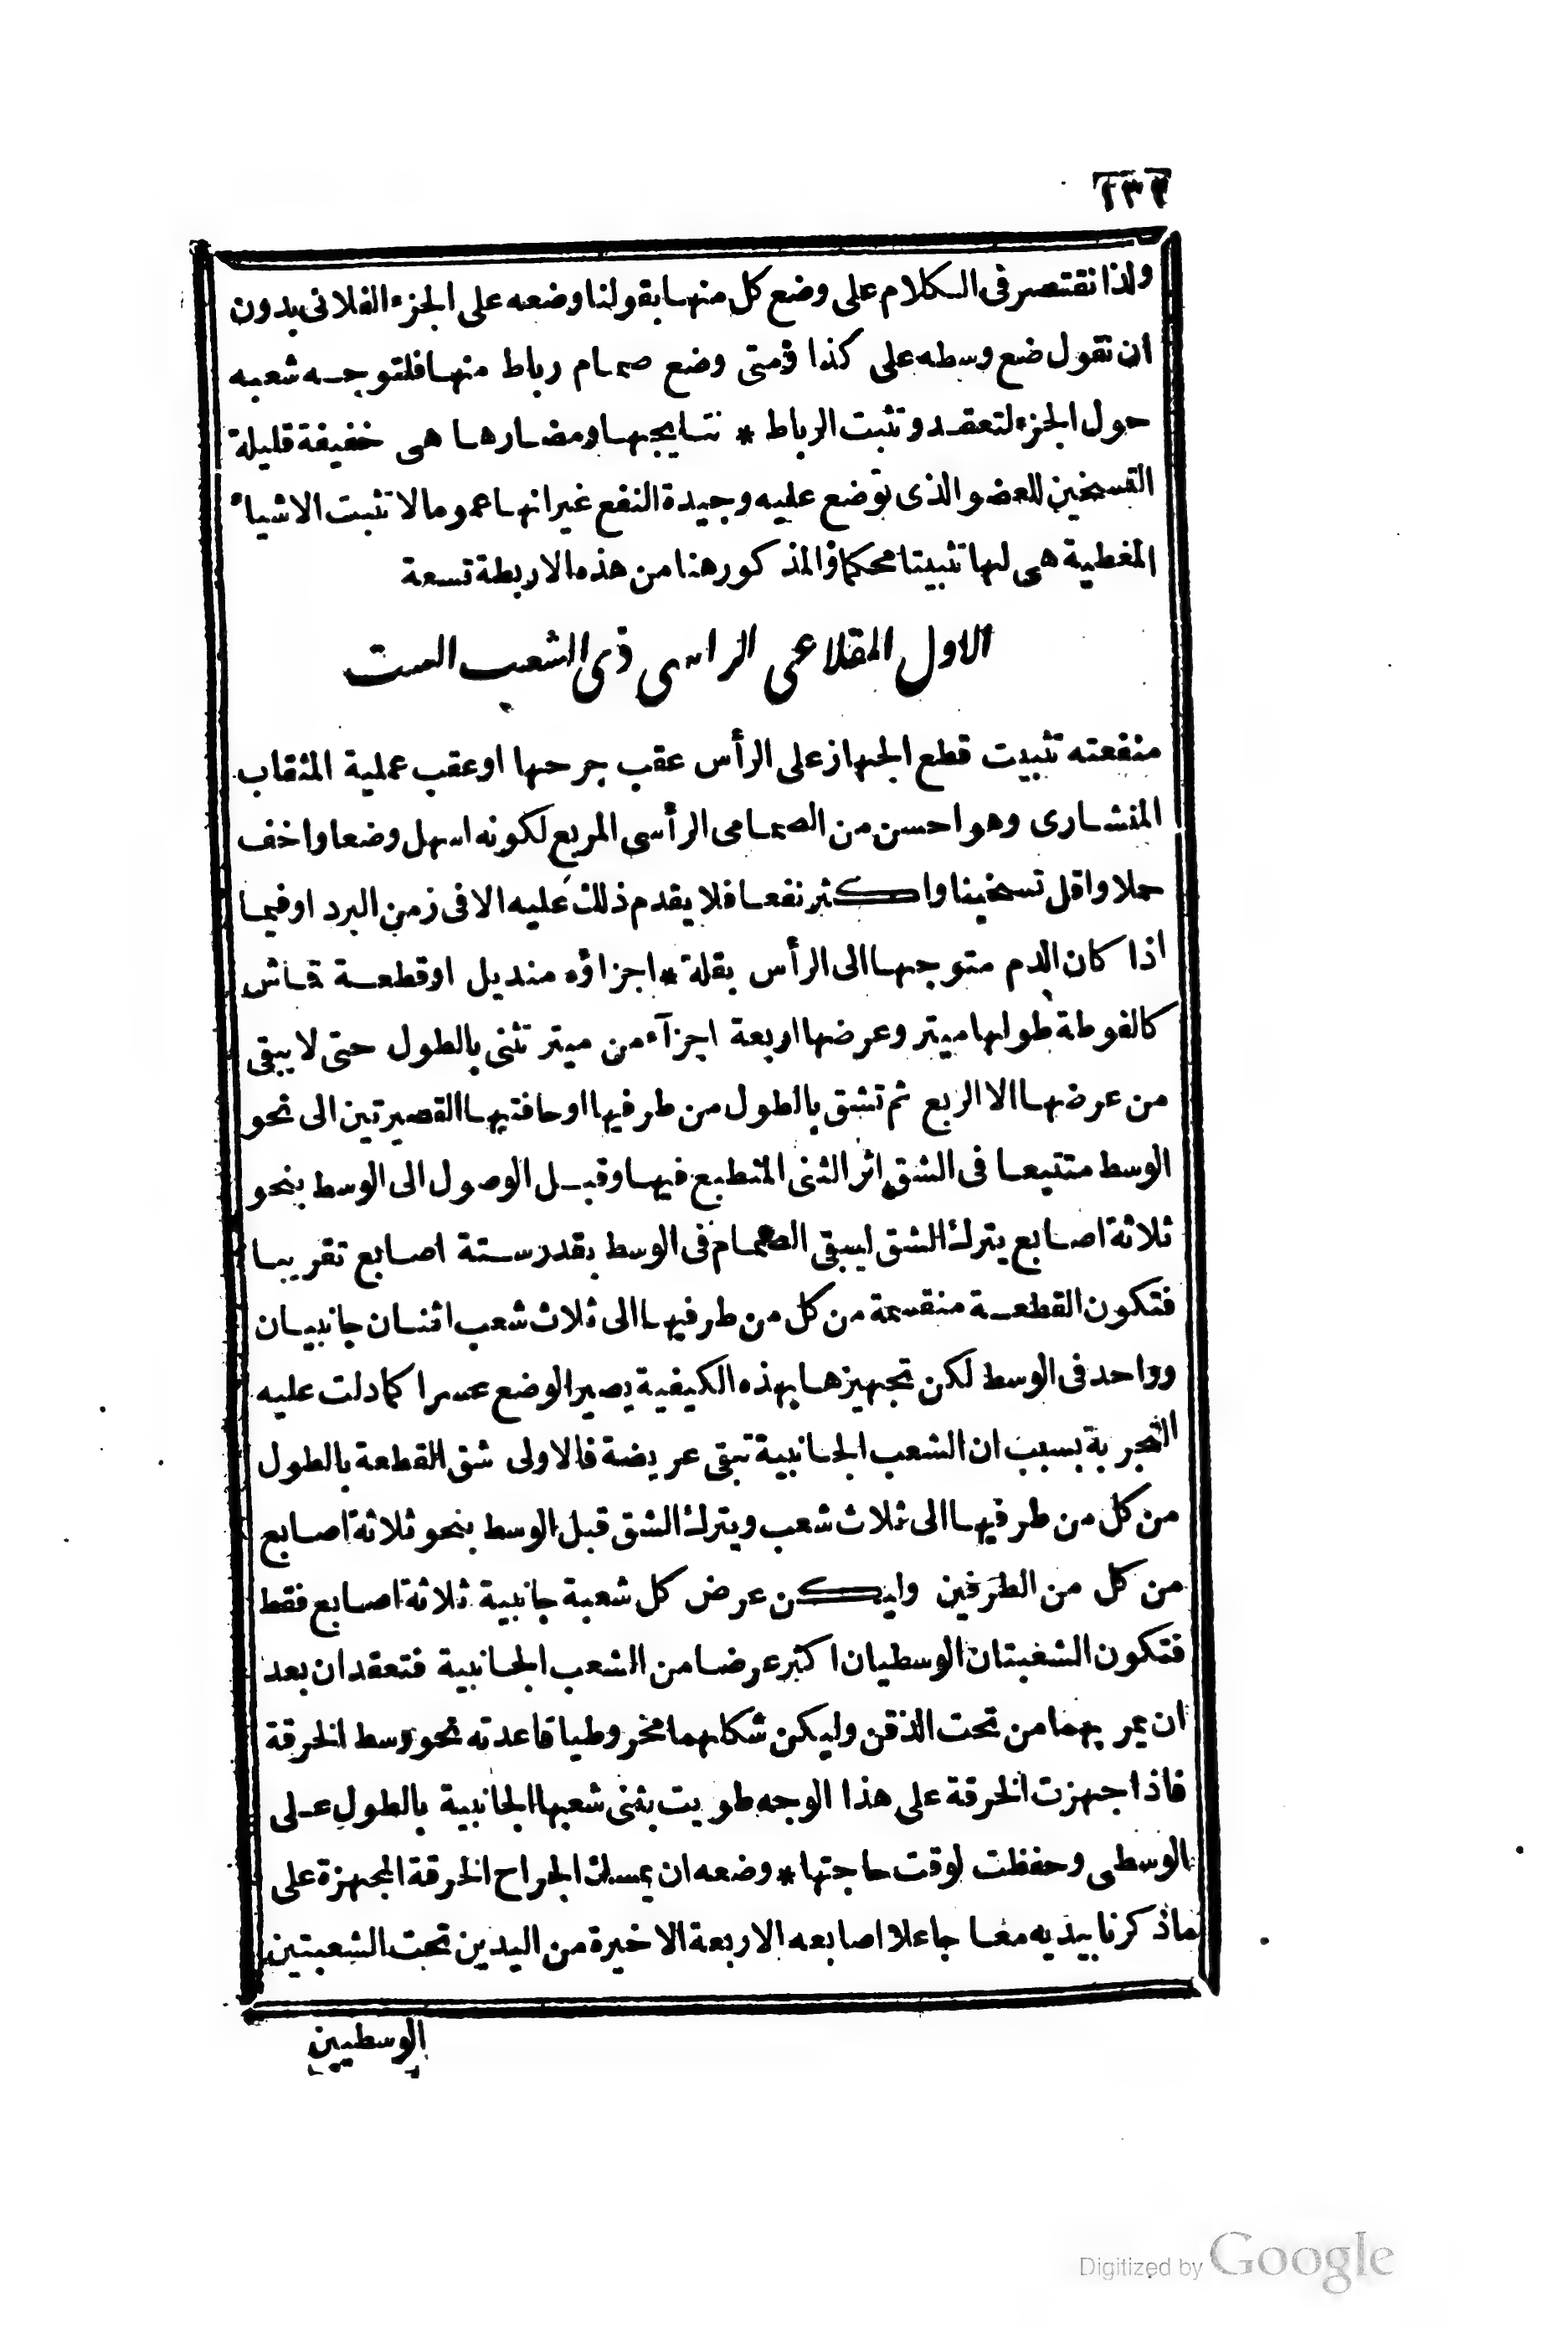 ولذا نقتصر فى الكلام على وضع كل منها بقولنا وضعه على الجزء الفلانى بدون
ان نقول ضع وسطه على كذا فمتى وضع صمام رباط منها فلتوجه شعبه
حول الجزء لتعقد وتثبت الرباط * نتايجها ومضارها هى خفيفة قليلة
التسخين للعضو الذى توضع عليه وجيدة النفع غير انها عموما لا تثبت الاشياء
المغطية هى لها تثبيتا محكما والمذكور هنا من هذه الاربطة تسعة
الاول المقلاعى الراسى ذى الشعب الست
منفعته تثبيت قطع الجهاز على الرأس عقب جرحها او عقب عملية المثقاب
المنشارى وهو احسن من الصمامى الرأسى المربع لكونه اسهل وضعا واخف
حملا واقل تسخينا واكثر نفعا فلا يقدم ذلك عليه الا فى زمن البرد او فيما
اذا كان الدم متوجها الى الرأس بقلة * اجزاؤه منديل او قطعة قماش
كالفوطة طولها ميتر وعرضها اربعة اجزآء من ميتر تثنى بالطول حتى لا يبقى
من عرضها الا الربع ثم تشق بالطول من طرفيها او حافتيها القصيرتين الى نحو
الوسط متتبعا فى الشق اثر الثنى المنطبع فيها وقبل الوصول الى الوسط بنحو
ثلاثة اصابع يترك الشق ليبقى الصمام فى الوسط بقدر ستة اصابع تقريبا
فتكون القطعة منقسمة من كل من طرفيها الى ثلاث شعب اثنان جانبيان
وواحد فى الوسط لكن تجهيزها بهذه الكيفية يصير الوضع عسرا كما دلت عليه
التجربة بسبب ان الشعب الجانبية تبقى عريضة فالاولى شق القطعة بالطول
من كل من طرفيها الى ثلاث شعب ويترك الشق قبل الوسط بنحو ثلاثة اصابع
من كل من الطرفين وليكن عرض كل شعبة جانبية ثلاثة اصابع فقط
فتكون الشعبتان الوسطيان اكثر عرضا من الشعب الجانبية فتعقدان بعد
ان يمر بهما من تحت الذقن وليكن شكلهما مخروطيا قاعدته نحو وسط الخرقة
فاذا جهزت الخرقة على هذا الوجه طويت بثنى شعبها الجانبية بالطول على
الوسطى وحفظت لوقت حاجتها * وضعه ان يمسك الجراح الخرقة المجهزة على
ما ذكرنا بيديه معا جاعلا اصابعه الاربعة الاخيرة من اليدين تحت الشعبتين
الوسطيين
Digitized by Google